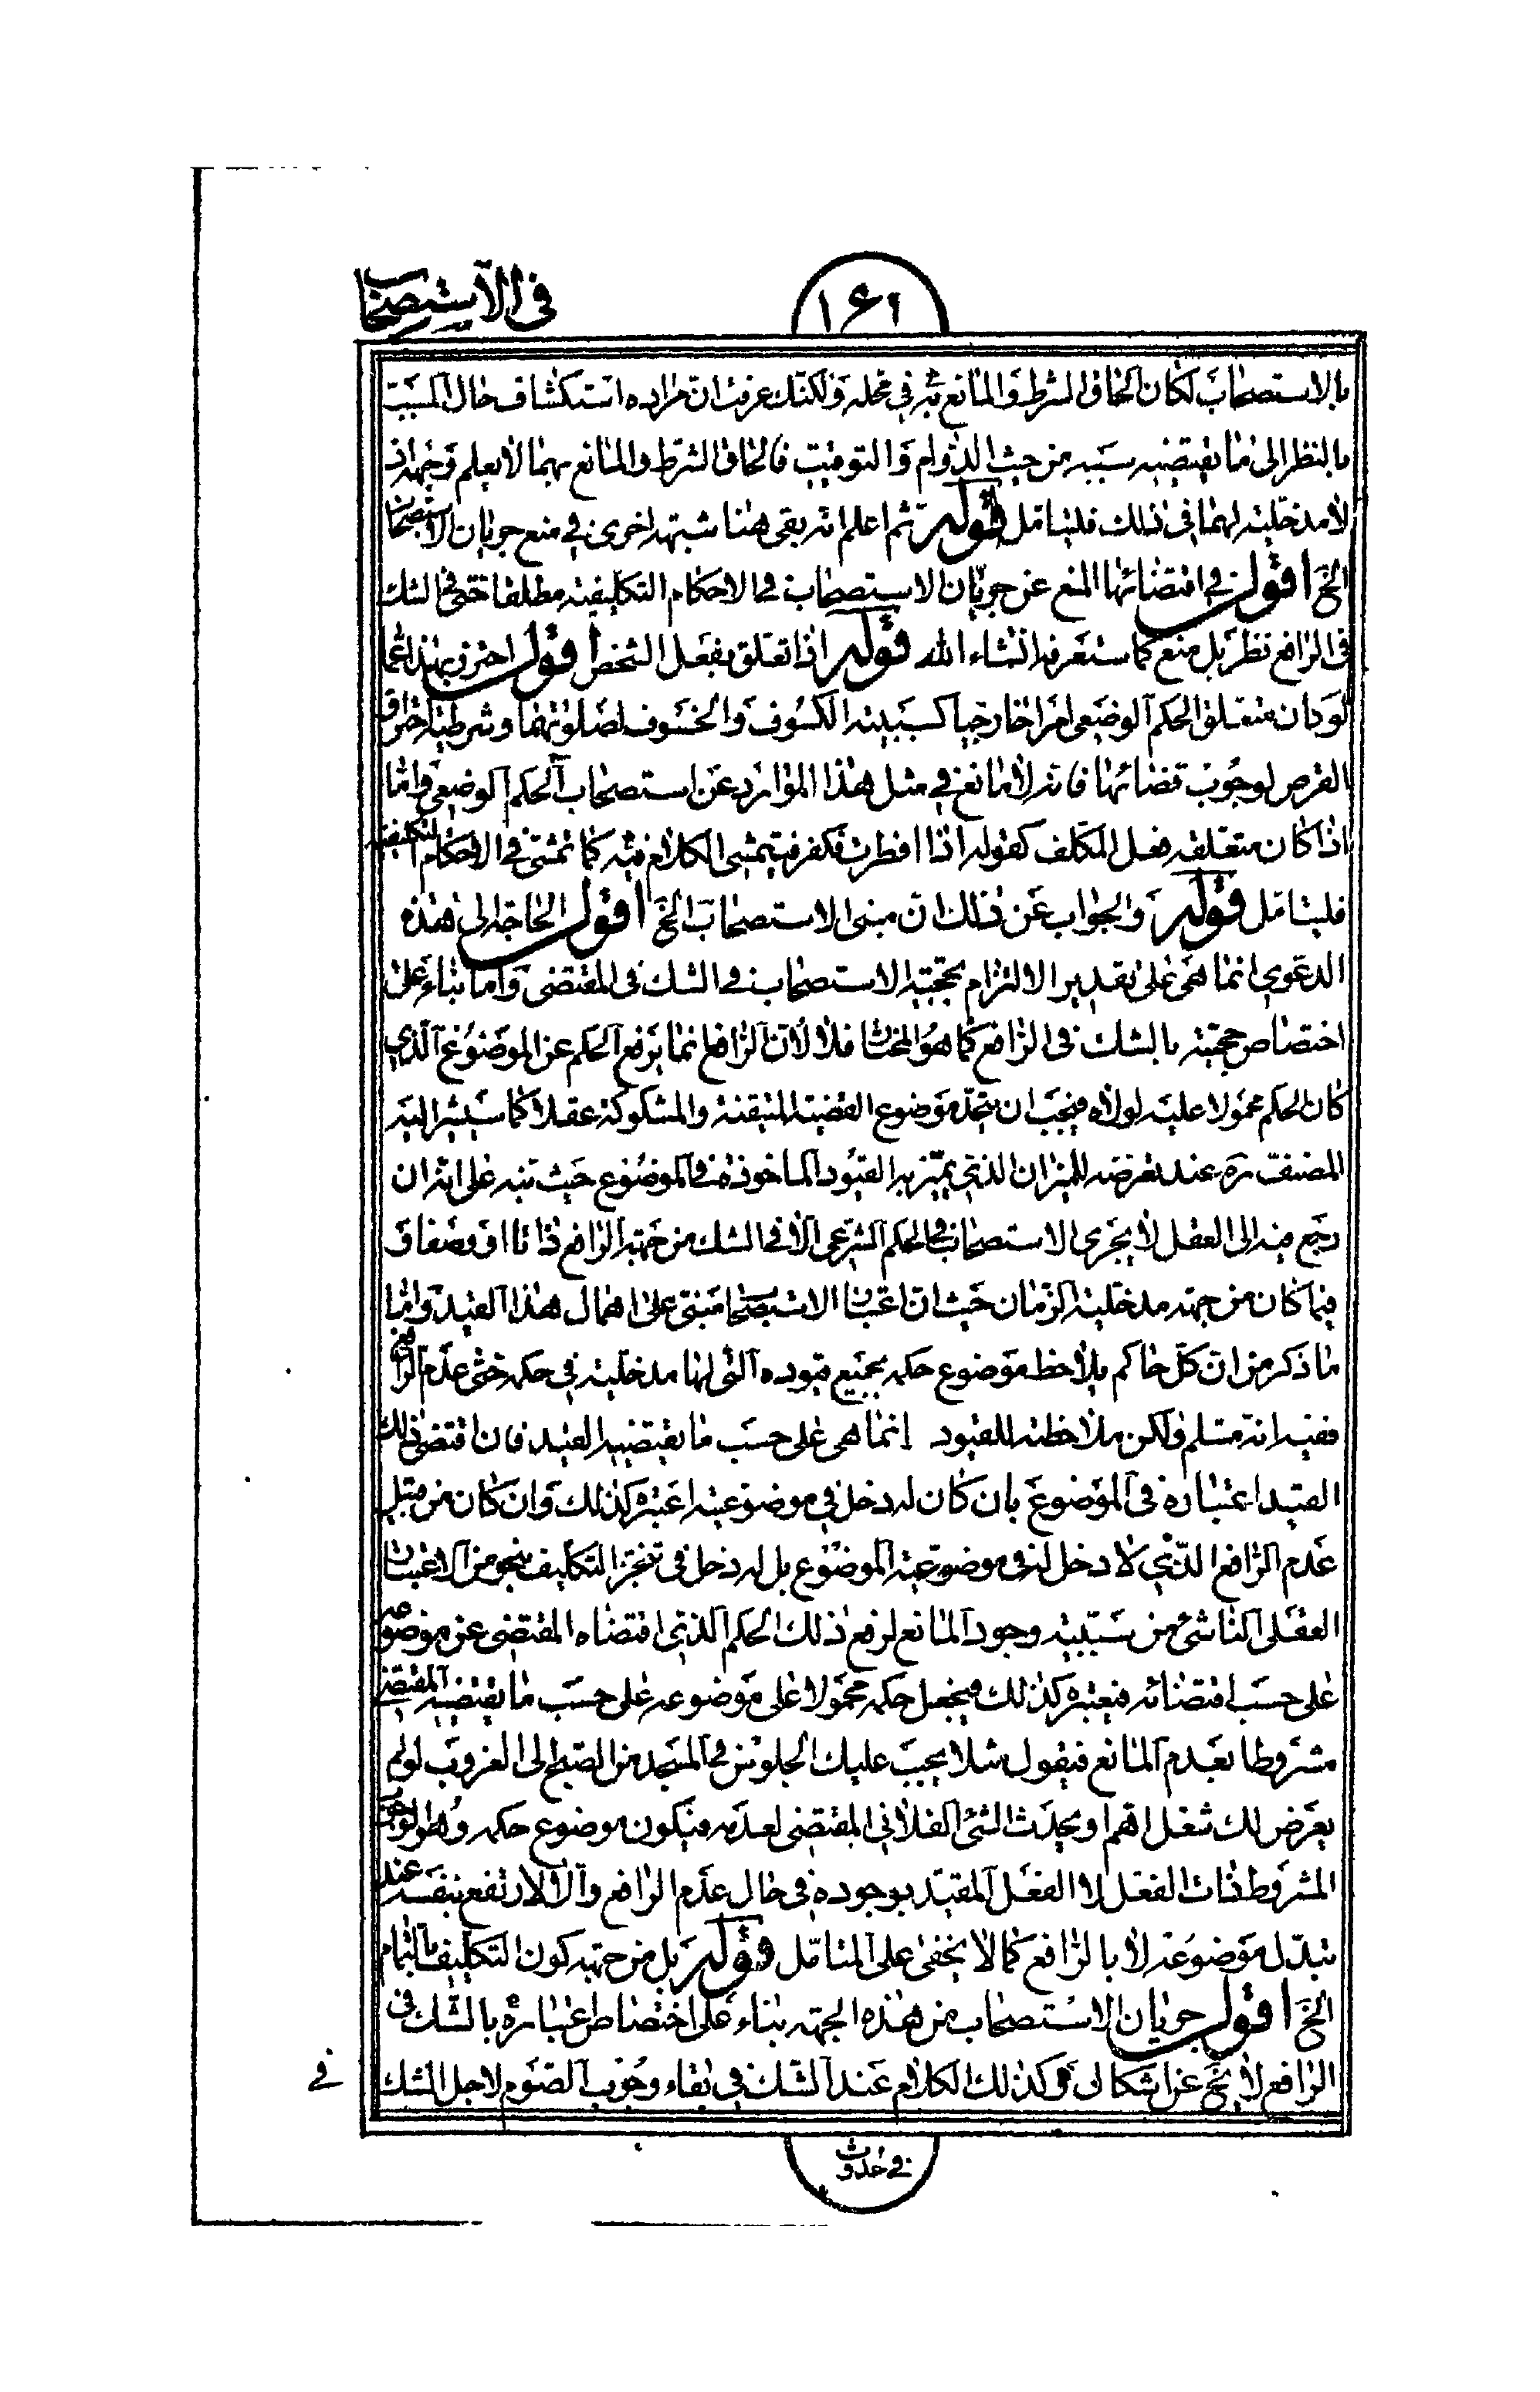 في الاستصحاب
١٤١
بالاستصحاب لكان الحاق الشرط والمانع به في محله ولكنك عرفت ان مراده استكشاف حال المسبب
بالنظر الى ما يقتضيه سببه من حيث الدوام والتوقيت فالحاق الشرط والمانع بهما لا يعلم وجهه اذ
لا مدخلية لهما في ذلك فليتامل قوله ثم اعلم انه بقى هنا شبهة اخرى في منع جريان الاستصحاب
الخ اقول في اقتضائها المنع عن جريان الاستصحاب في الاحكام التكليفية مطلقا حتى في الشك
في الرافع نظر بل منع كما ستعرفه انشاء الله قوله اذا تعلق بفعل الشخص اقول احترز بهذا عما
لو كان متعلق الحكم الوضعي امرا خارجيا كسببية الكسوف والخسوف لصلوتهما وشرطية احتراق
القرص لوجوب قضائها فانه لا مانع في مثل هذا الموارد عن استصحاب الحكم الوضعي واما
اذا كان متعلقه فعل المكلف كقوله اذا افطرت فكفر فيتمشى الكلام فيه كما تمشى في الاحكام التكليفية
فليتامل قوله والجواب عن ذلك ان مبنى الاستصحاب الخ اقول الحاجة الى هذه
الدعوى انما هي على تقدير الالتزام بحجية الاستصحاب في الشك في المقتضى واما بناء على
اختصاص حجيته بالشك في الرافع كما هو المختار فلا لان الرافع انما يرفع الحكم عن الموضوع الذي
كان الحكم محمولا عليه لولاه فيجب ان يتحد موضوع القضية المتيقنة والمشكوكة عقلا كما سيشير اليه
المصنف ره عند تعرضه للميزان الذي يميز به القيود الماخوذة في الموضوع حيث تنبه على انه ان
رجع فيه الى العقل لا يجرى الاستصحاب في الحكم الشرعي الا في الشك من جهة الرافع ذاتا او وصفا و
فيما كان من جهة مدخلية الزمان حيث ان اعتبار الاستصحاب مبنى على اهمال هذا القيد واما
ما ذكر من ان كل حاكم يلاحظ موضوع حكمه بجميع قيوده التي لها مدخلية في حكمه حتى عدم الرافع
ففيه انه مسلم ولكن ملاحظته للقيود انما هي على حسب ما يقتضيه القيد فان اقتضى ذلك
القيد اعتباره في الموضوع بان كان له دخل في موضوعيته اعتبره كذلك وان كان من قبيل
عدم الرافع الذي لا دخل له في موضوعية الموضوع بل له دخل في تنجز التكليف بنحو من الاعتبار
العقلى الناشئ من سببية وجود المانع لرفع ذلك الحكم الذي اقتضاه المقتضى عن موضوعه
على حسب اقتضائه فيعتبره كذلك فيجعل حكمه محمولا على موضوعه على حسب ما يقتضيه المقتضى
مشروطا بعدم المانع فيقول مثلا يجب عليك الجلوس في المسجد من الصبح الى الغروب لو لم
يعرض لك شغل اهم او يحدث الشئ الفلاني المقتضى لعدمه فيكون موضوع حكمه وهو الوجوب
المشروط ذات الفعل لا الفعل المقيد بوجوده في حال عدم الرافع والا لارتفع بنفسه عند
تبدل موضوعه لا بالرافع كما لا يخفى على المتامل قوله بل من جهة كون التكليف باتمام
الخ اقول جريان الاستصحاب من هذه الجهة بناء على اختصاص اعتباره بالشك في
الرافع لا يخ عن اشكال وكذلك الكلام عند الشك في بقاء وجوب الصوم لاجل الشك
في
في حدوث